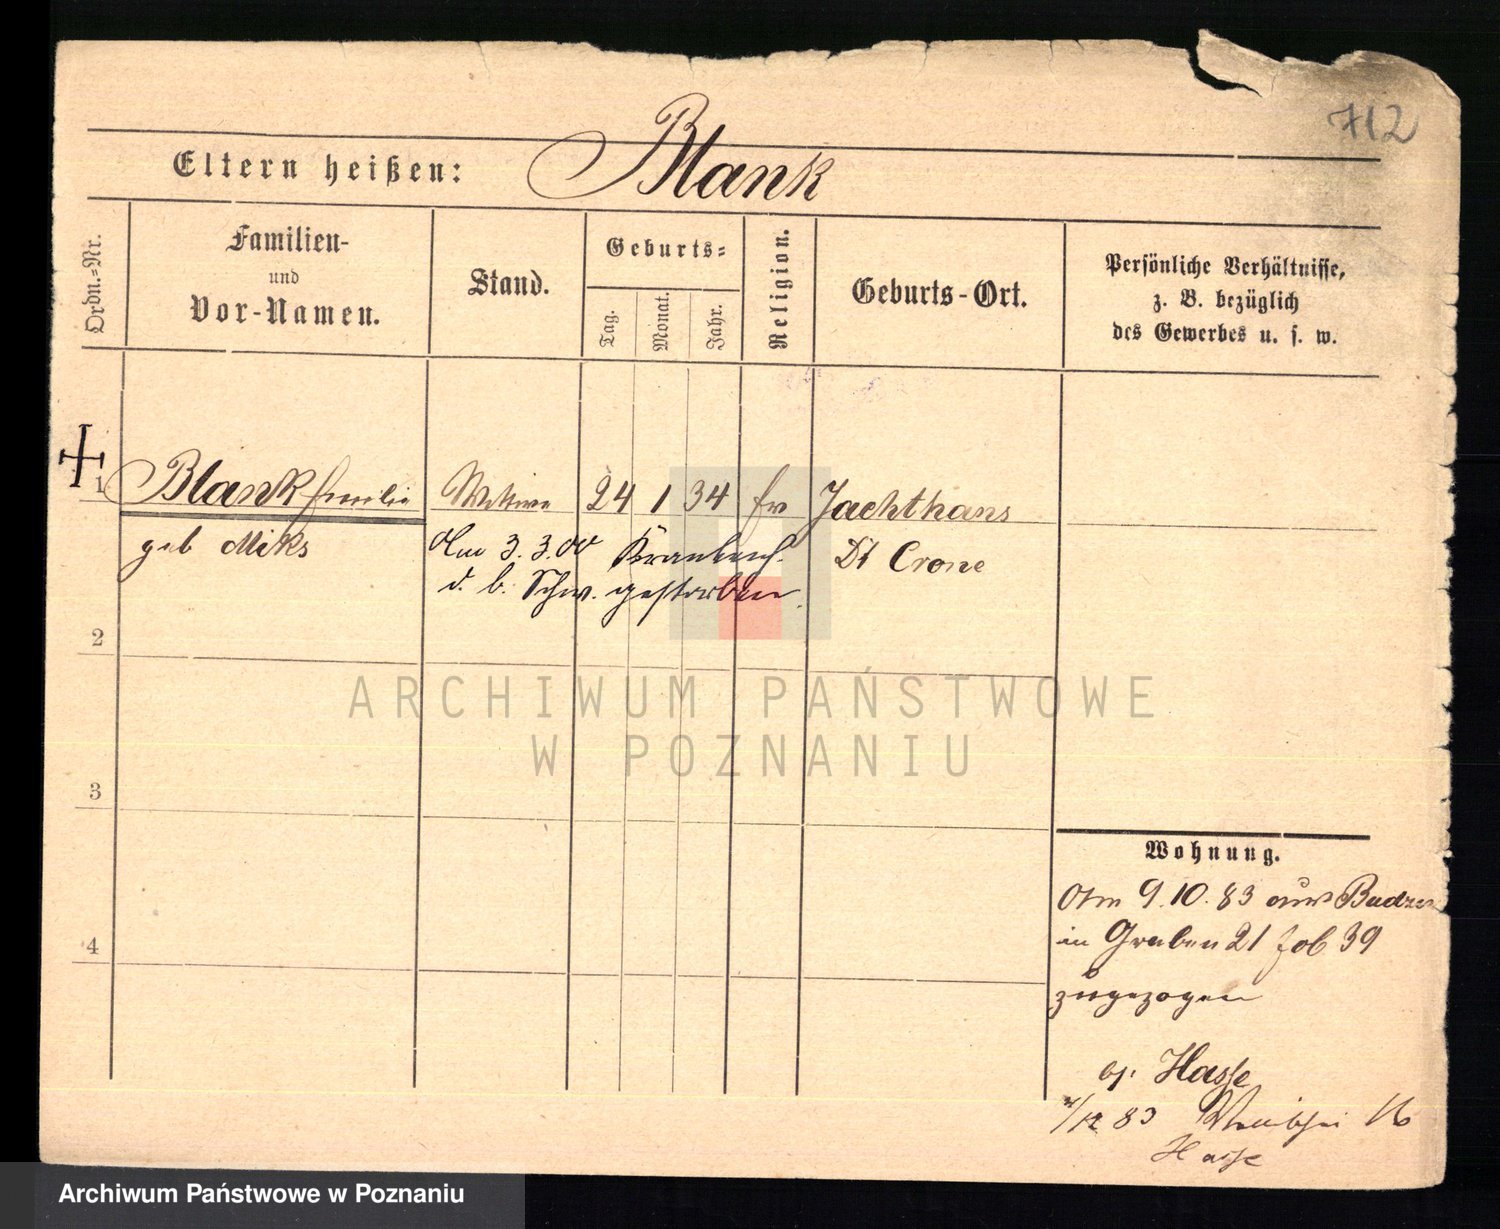 712
Eltern heißen: Blank
Ordn.-Nr.
Familien-
und
Vor-Namen.
Stand.
Geburts-
Tag.
Monat.
Jahr.
Religion.
Geburts-Ort.
Persönliche Verhältnisse,
z. B. bezüglich
des Gewerbes u. s. w.
1 Blank Emilie Wittwe 24 1 34 ev Jachthaus
geb Miks Am 3.3.00 Dt Crone
d. b. Schw. gestorben.
2
3
4
Wohnung.
Am 9.10.83 aus Budzin
in Graben 21 fol 39
zugezogen
Hasse
/12 83 16
Hasse
ARCHIWUM PAŃSTWOWE
W POZNANIU
Archiwum Państwowe w Poznaniu